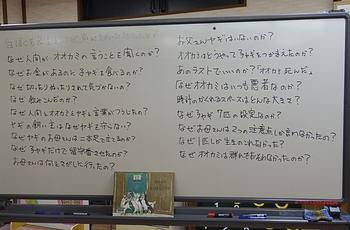 なぜ人間がオオカミの言うことを聞くのか?
なぜお金があるのに子ヤギを食べるのか?
なぜ
なぜ飲みこんだのか?
なぜ人間とオオカミとヤギと言葉がつうじたの?
ヤギの飼い主はなぜヤギを守らない?
なぜヤギのお母さんは二本足で立てるのか?
なぜ子ヤギだけで留守番させたのか?
お母さんは何をさがしに行ったの?
お父さんヤギはいないのか?
オオカミはどうやって子ヤギをつかまえたのか?
あのラストでいいのか?「オオカミ死んだ」
なぜオオカミはいつも悪者なのか?
時計のかくれるスペースはどんな大きさ?
なぜ子ヤギ7匹の設定なのか?
なぜお母さんは2つの注意点しか言わなかったの?
なぜ1匹しか生きのこれなかった?
なぜオオカミは群れでおそわなかったのか?